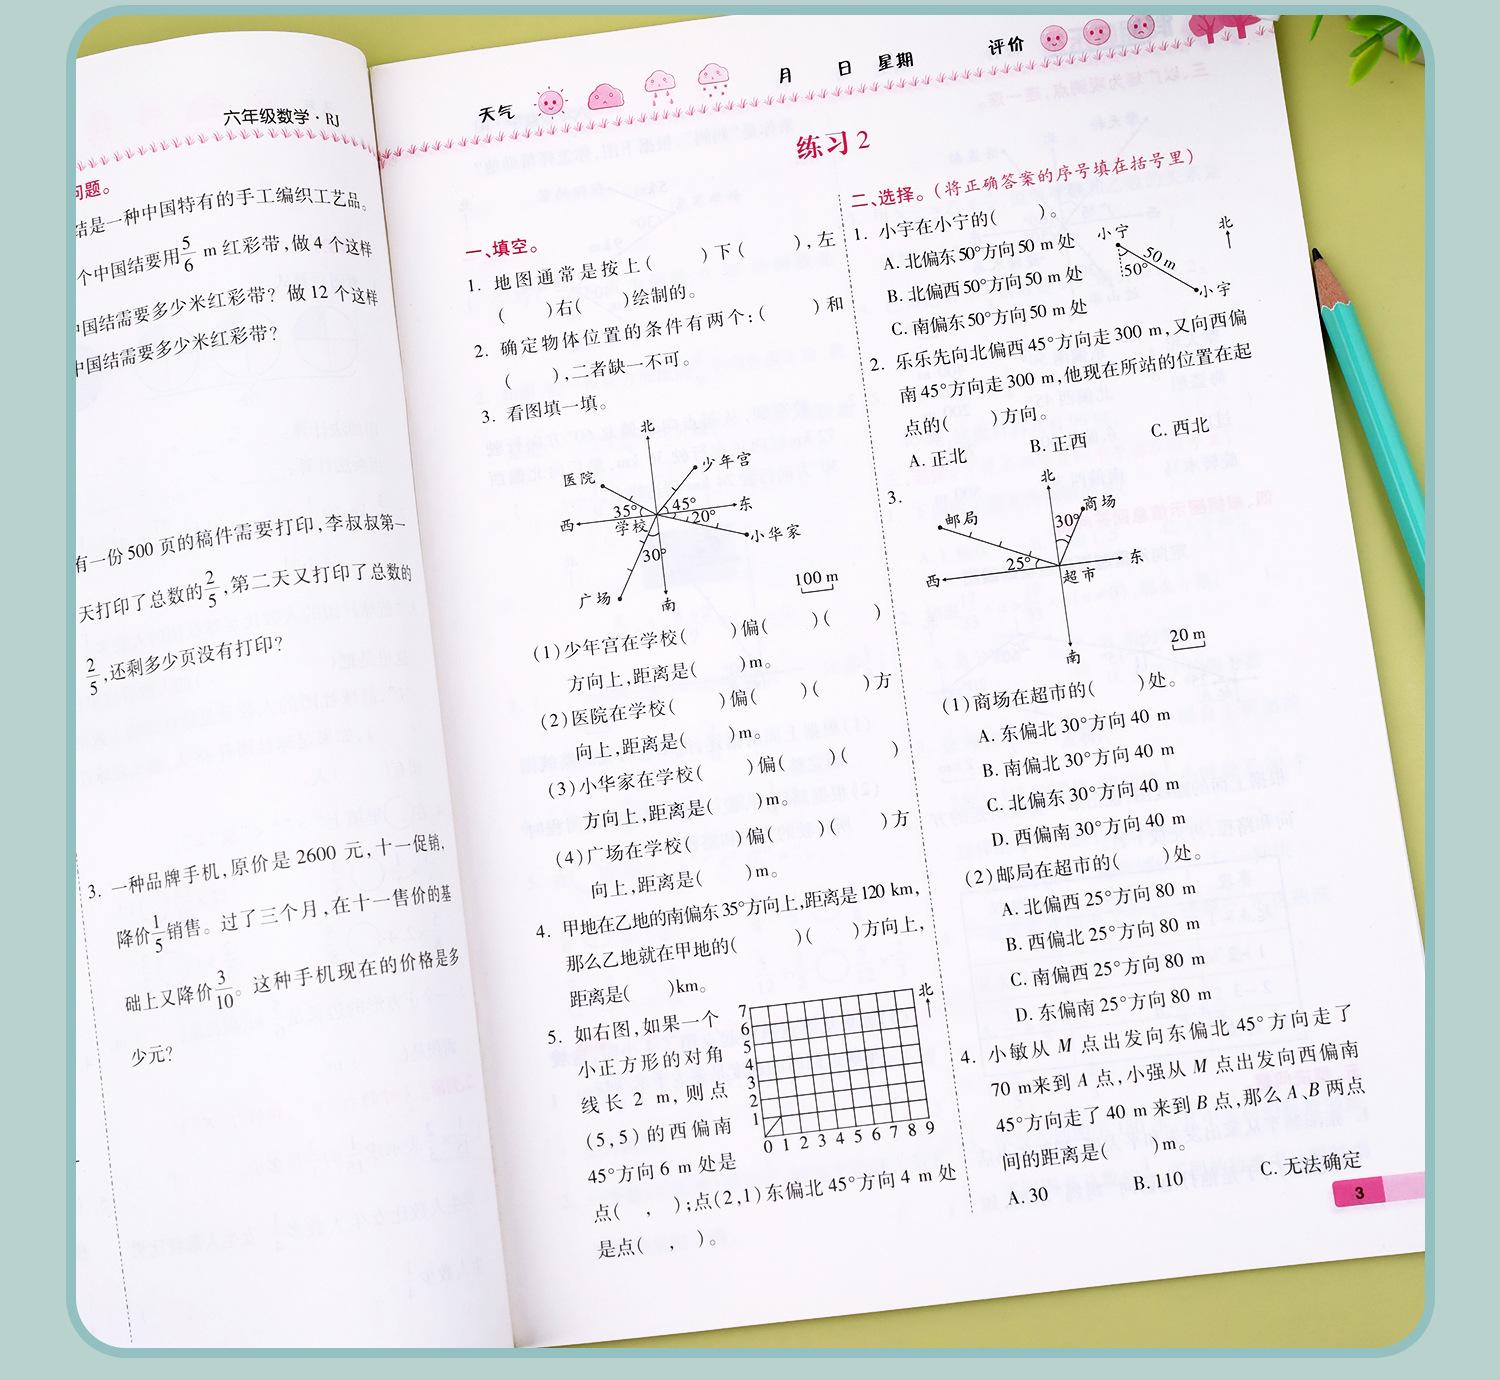 六年级数学·RJ
问题。
结是一种中国特有的手工编织工艺品。
个中国结要用5/6 m 红彩带,做 4 个这样
中国结需要多少米红彩带? 做 12 个这样
中国结需要多少米红彩带?
有一份 500 页的稿件需要打印,李叔叔第一
天打印了总数的2/5,第二天又打印了总数的
2/5,还剩多少页没有打印?
3. 一种品牌手机,原价是 2600 元,十一促销,
降价1/5销售。过了三个月,在十一售价的基
础上又降价3/10。这种手机现在的价格是多
少元?
天气 月 日 星期 评价
练习 2
一、填空。
1. 地图通常是按上( )下( ),左
( )右( )绘制的。
2. 确定物体位置的条件有两个:( )和
( ),二者缺一不可。
3. 看图填一填。
北
少年宫
医院
35° 45° 东
西 学校 20°
小华家
30°
100 m
广场 南
(1)少年宫在学校( )偏( )( )
方向上,距离是( )m。
(2)医院在学校( )偏( )( )方
向上,距离是( )m。
(3)小华家在学校( )偏( )( )
方向上,距离是( )m。
(4)广场在学校( )偏( )( )方
向上,距离是( )m。
4. 甲地在乙地的南偏东 35°方向上,距离是 120 km,
那么乙地就在甲地的( )( )方向上,
距离是( )km。
5. 如右图,如果一个
小正方形的对角
线长 2 m,则点
(5,5)的西偏南
45°方向 6 m 处是
点( , );点(2,1)东偏北 45°方向 4 m 处
是点( , )。
北
7
6
5
4
3
2
1
0 1 2 3 4 5 6 7 8 9
二、选择。(将正确答案的序号填在括号里)
1. 小宇在小宁的( )。
A. 北偏东 50°方向 50 m 处
B. 北偏西 50°方向 50 m 处
C. 南偏东 50°方向 50 m 处
小宁 北
50 m
50°
小宇
2. 乐乐先向北偏西 45°方向走 300 m,又向西偏
南 45°方向走 300 m,他现在所站的位置在起
点的( )方向。
A. 正北 B. 正西 C. 西北
3.
北
商场
邮局 30°
25° 东
西 超市
南
20 m
(1)商场在超市的( )处。
A. 东偏北 30°方向 40 m
B. 南偏北 30°方向 40 m
C. 北偏东 30°方向 40 m
D. 西偏南 30°方向 40 m
(2)邮局在超市的( )处。
A. 北偏西 25°方向 80 m
B. 西偏北 25°方向 80 m
C. 南偏西 25°方向 80 m
D. 东偏南 25°方向 80 m
4. 小敏从 M 点出发向东偏北 45°方向走了
70 m来到 A 点,小强从 M 点出发向西偏南
45°方向走了 40 m 来到 B 点,那么 A、B 两点
间的距离是( )m。
A. 30 B. 110 C. 无法确定
3